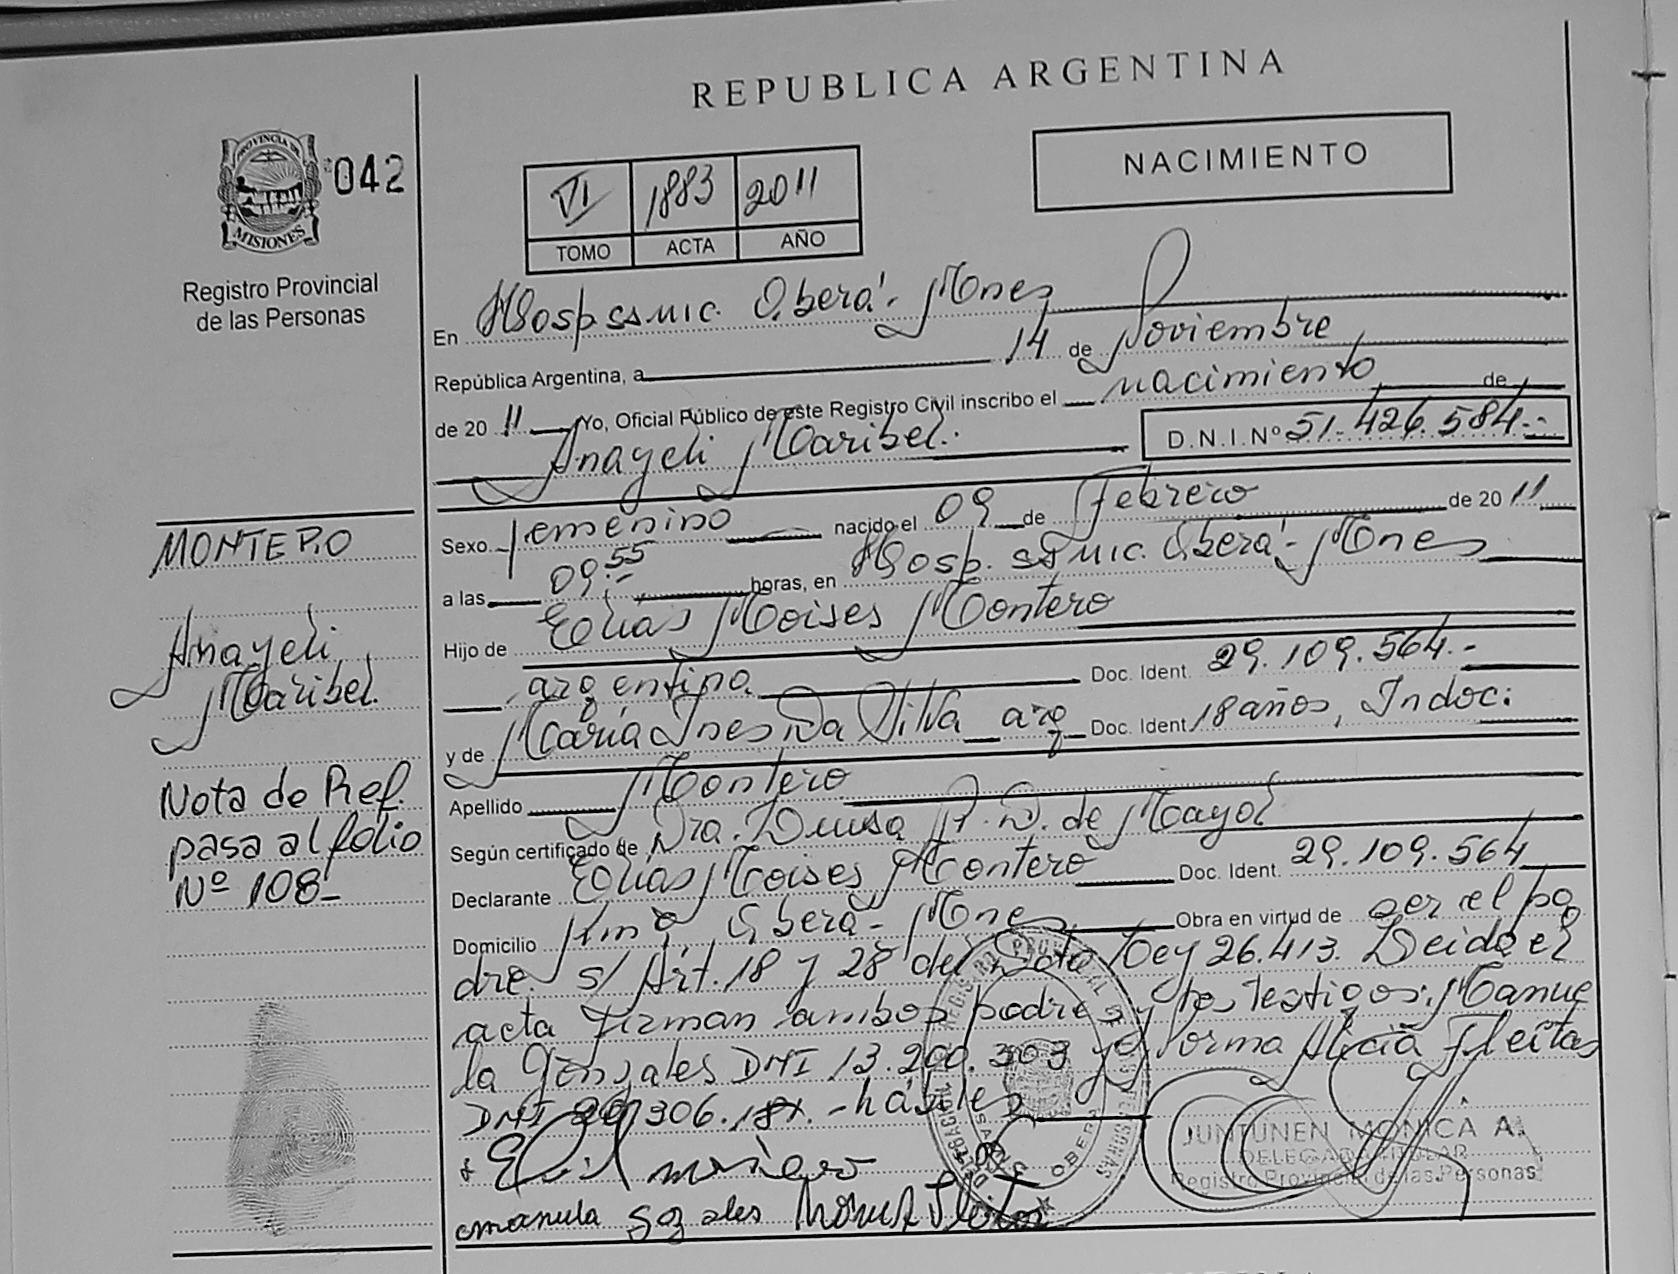 REPUBLICA ARGENTINA
PROVINCIA DE
MISIONES
042
Registro Provincial
de las Personas
VI 1883 2011
TOMO ACTA AÑO
NACIMIENTO
En Hosp. ssmic. Oberá - Mnes
República Argentina, a 14 de Noviembre
de 2011 Yo, Oficial Público de este Registro Civil inscribo el nacimiento de
Anayeli Maribel. D.N.I.Nº 51.426.584.-
Sexo femenino nacido el 09 de Febrero de 2011
a las 09:55 horas, en Hosp. ssmic. Oberá - Mnes
Hijo de Elias Moises Montero
argentino Doc. Ident. 29.109.564.-
y de Maria Ines Da Silva arg Doc. Ident 18 años, Indoc.
Apellido Montero
Según certificado de Dra. Luisa A. D. de Mayol
Declarante Elias Moises Montero Doc. Ident. 29.109.564
Domicilio Oberá - Mnes Obra en virtud de ser el pa
dre s/ Art. 18 y 28 del Ley 26.413. Leida el
acta firman ambos padres y tes testigos: Manue
la Gonzales DNI 13.200.303 y Norma Alicia Fleitas
DNI hábiles
JUNTUNEN MONICA A.
DELEGADA TITULAR
Registro Provincial de las Personas
MONTERO
Anayeli
Maribel.
Nota de Ref.
pasa al folio
Nº 108-